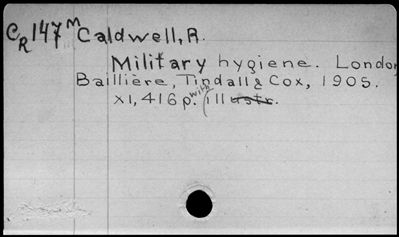 CR147M Caldwell, R.
Military hygiene. London,
Baillière, Tindall & Cox, 1905.
XI, 416 p. with (ill